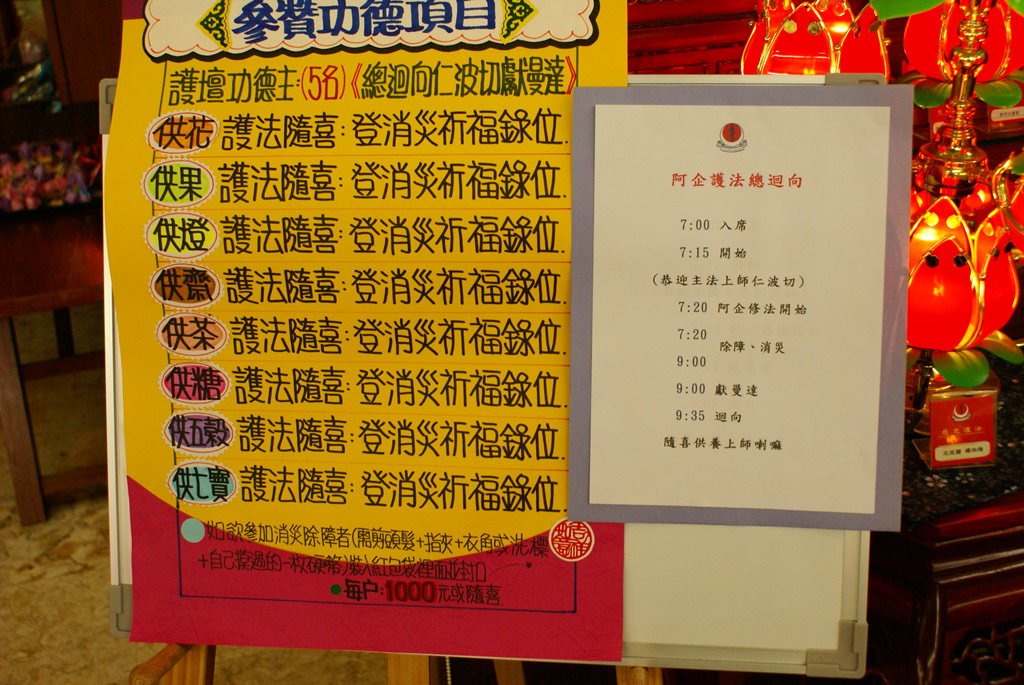 參贊功德項目
護壇功德主:(5名)《總迴向仁波切獻曼達》
供花 護法隨喜:登消災祈福錄位.
供果 護法隨喜:登消災祈福錄位.
供燈 護法隨喜:登消災祈福錄位.
供齋 護法隨喜:登消災祈福錄位.
供茶 護法隨喜:登消災祈福錄位.
供糖 護法隨喜:登消災祈福錄位.
供五穀 護法隨喜:登消災祈福錄位.
供七寶 護法隨喜:登消災祈福錄位.
如欲參加消災除障者(需剪頭髮+指夾+衣角或
+自己摸過的一枚硬幣)裝入紅包袋裡面並封口
每户:1000元或隨喜
阿企護法總迴向
7:00 入席
7:15 開始
(恭迎主法上師仁波切)
7:20 阿企修法開始
7:20
除障、消災
9:00
9:00 獻曼達
9:35 迴向
隨喜供養上師喇嘛